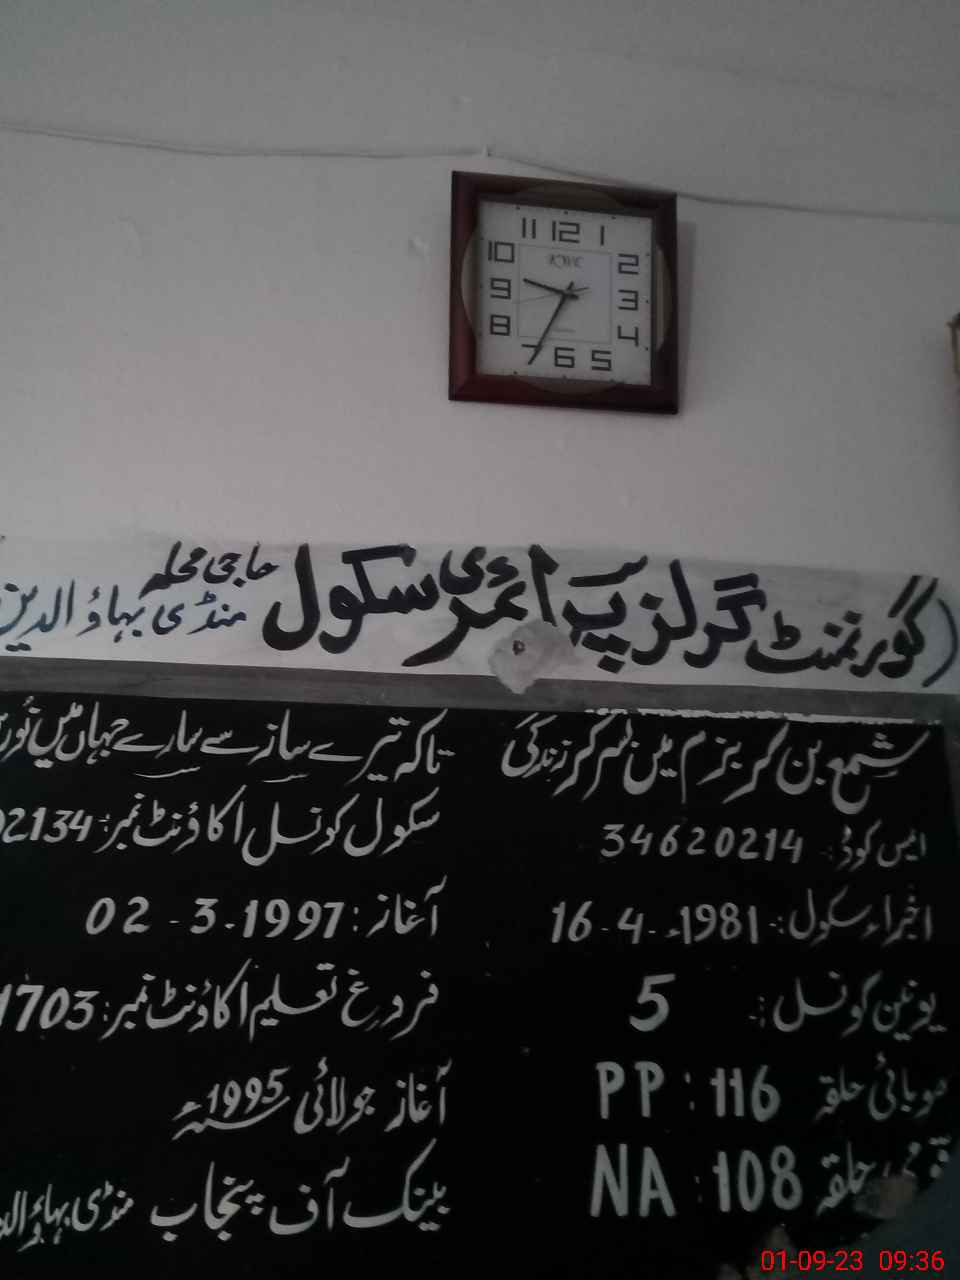 11 12 1
10 2
9 3
8 4
7 6 5
گورنمنٹ گرلز پرائمری سکول حاجی محلہ
منڈی بہاؤالدین
شمع بن کر بزم میں بسر کر زندگی
تاکہ تیرے ساز سے سارے جہاں میں نُور
ایس کوڈ :- 34620214
سکول کونسل اکاؤنٹ نمبر :- 2134
اجراء سکول :- 16-4-1981ء
آغاز : 02-3-1997
یونین کونسل :- 5
فروغِ تعلیم اکاؤنٹ نمبر : 1703
صوبائی حلقہ PP : 116
آغاز جولائی 1995ء
قومی حلقہ NA : 108
بینک آف پنجاب منڈی بہاؤالد
01-09-23 09:36